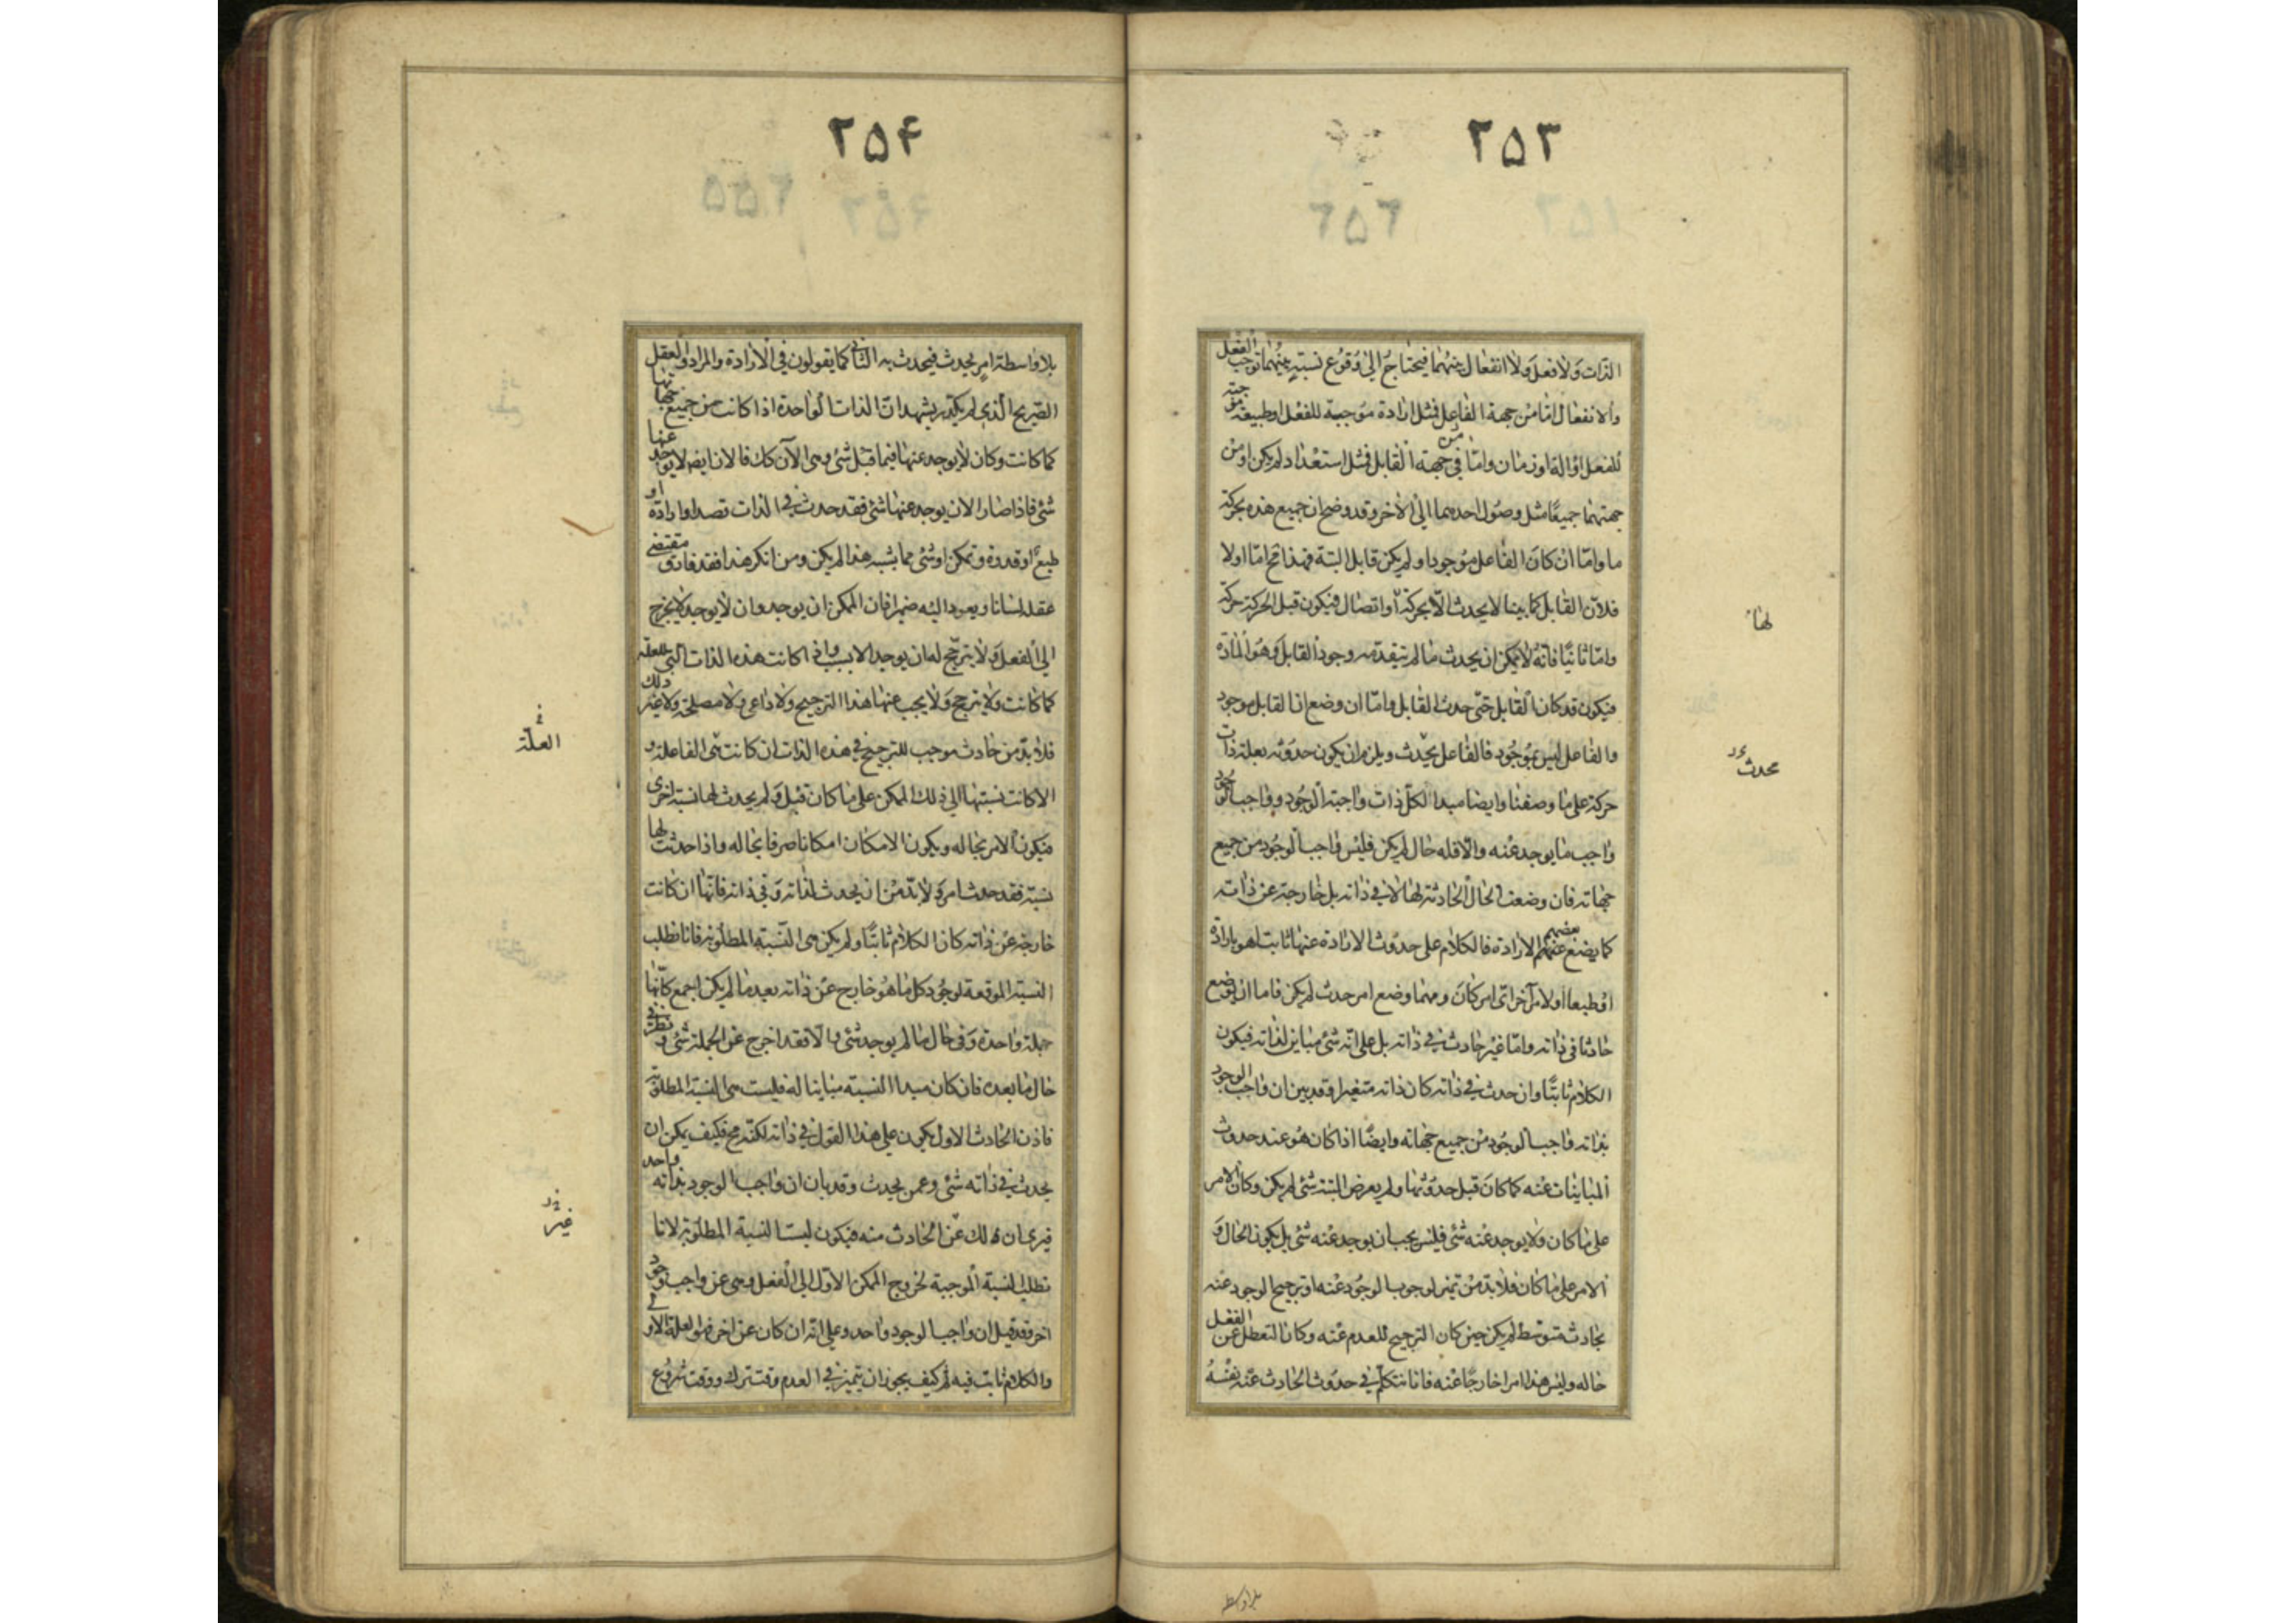 ۲۵۳
الذات ولا فعل ولا انفعال بينهما فيحتاج الى وقوع نسبة بينهما توجب الفعل
والانفعال اما من جهة الفاعل فمثل ارادة موجبة للفعل او طبيعة موجبة
للفعل او الة او زمان واما فى جهة القابل فمثل استعداد لم يكن او من
جهتهما جميعا مثل وصول احدهما الى الآخر وقد وضح ان جميع هذه بحركة
ما واما ان كان الفاعل موجودا ولم يكن قابل البتة فهذا مح اما اولا
فلان القابل كما بينا لا يحدث الا بحركة او اتصال فيكون قبل الحركة حركة
واما ثانيا فانه لا يمكن ان يحدث ما لم يتقدمه وجود القابل وهو المادة
فيكون قد كان القابل حتى حدث القابل واما ان وضع ان القابل موجود
والفاعل ليس بموجود فالفاعل يحدث ويلزم ان يكون حدوثه بعلة ذات
حركة على ما وصفنا وايضا مبدا الكل ذات واجبة الوجود وواجب الوجود
واجب ما يوجد عنه والا فله حال لم يكن فليس واجب الوجود من جميع
جهاته فان وضعت الحال الحادثة لها لا فى ذاته بل خارجة عن ذاته
كما يضع بعضهم الارادة فالكلام على حدوث الارادة عنها ثابت اهو بارادة
او طبعا او لامر آخر اى امر كان ومهما وضع امر حدث لم يكن فاما ان يوضع
حادثا فى ذاته واما غير حادث فى ذاته بل على انه شئ مباين لذاته فيكون
الكلام ثابتا وان حدث فى ذاته كان ذاته متغيرا وقد بين ان واجب الوجود
بذاته واجب الوجود من جميع جهاته وايضا اذا كان هو عند حدوث
المباينات عنه كما كان قبل حدوثها ولم يعرض البتة شئ لم يكن وكان الامر
على ما كان ولا يوجد عنه شئ فليس يجب ان يوجد عنه شئ بل يكون الحال و
الامر على ما كان فلا بد من تميز لوجوب الوجود عنه او ترجيح الوجود عنه
بحادث متوسط لم يكن حين كان الترجيح للعدم عنه وكان التعطل عن الفعل
حاله وليس هذا امرا خارجا عنه فانا نتكلم فى حدوث الحادث عنه نفسه
لها
محدث
بلا واسطة
۲۵۴
بلا واسطة امر يحدث فيحدث به الثانى كما يقولون فى الارادة والمراد والعقل
الصريح الذى لم يكدر يشهد ان الذات الواحدة اذا كانت من جميع جهاتها
كما كانت وكان لا يوجد عنها فيما قبل شئ وهى الآن كك فالان ايضا لا يوجد عنها
شئ فاذا صار الان يوجد عنها شئ فقد حدث فى الذات قصد او ارادة او
طبع او قدرة وتمكن او شئ مما يشبه هذا لم يكن ومن انكر هذا فقد فارق مقتضى
عقله لسانا ويعود اليه ضميرا فان الممكن ان يوجد وان لا يوجد لا يخرج
الى الفعل ولا يترجح له ان يوجد الا بسبب واذا كانت هذه الذات التى للعلة
كما كانت ولا يترجح ولا يجب عنها هذا الترجيح ولا داعى ولا مصلحة ولا غير ذلك
فلا بد من حادث موجب للترجيح فى هذه الذات ان كانت هى الفاعلة و
الا كانت نسبتها الى ذلك الممكن على ما كان قبل ولم يحدث لها نسبة اخرى
فيكون الامر بحاله ويكون الامكان امكانا صرفا بحاله واذا حدثت لها
نسبة فقد حدث امر ولا بد من ان يحدث لذاته وفى ذاته فانها ان كانت
خارجة عن ذاته كان الكلام ثابتا ولم يكن هى النسبة المطلوبة فانا نطلب
النسبة الموقعة لوجود كل ما هو خارج عن ذاته بعد ما لم يكن اجمع كانها
جملة واحدة وفى حال ما لم يوجد شئ والا فقد اخرج عن الجملة شئ ونظر فى
حال ما بعده فان كان مبدا النسبة مباينا له فليست هى النسبة المطلوبة
فاذن الحادث الاول يكون على هذا القول فى ذاته لكنه مح فكيف يمكن ان
يحدث فى ذاته شئ وعمن يحدث وقد بان ان واجب الوجود بذاته واحد
فيرى ان ذلك عن الحادث منه فيكون ليست النسبة المطلوبة لانا
نطلب النسبة الموجبة لخروج الممكن الاول الى الفعل وهى عن واجب وجود
اخر وقد قيل ان واجب الوجود واحد وعلى انه ان كان عن اخر فهو العلة الاولى
والكلام ثابت فيه ثم كيف يجوز ان يتميز فى العدم وقت ترك ووقت شروع
فى
العلة
غير